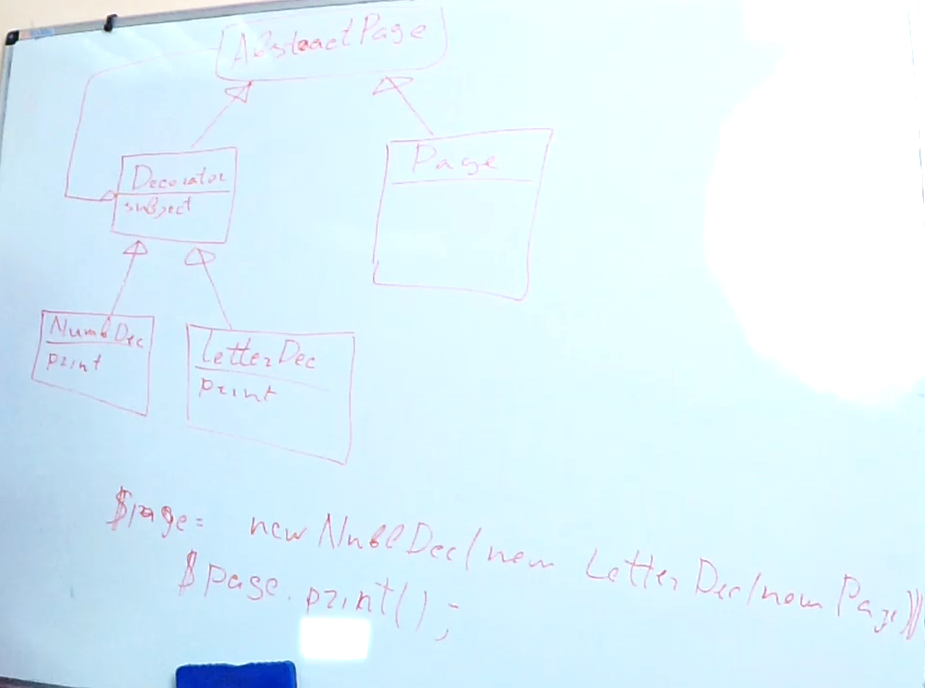 AbstractPage
Decorator
subject
Page
NumbDec
print
LetterDec
print
$page= new NumbDec(new LetterDec(new Page))
$page.print();